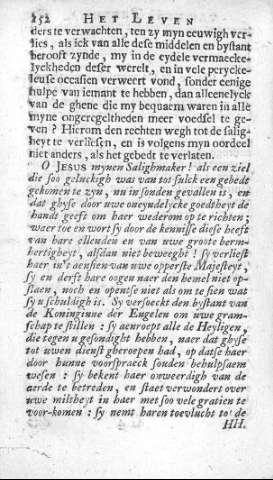 252 HET LEVEN
ders te verwachten, ten zy myn eeuwigh ver-
lies, als ick van alle dese middelen en bystant
berooft zynde, my in de eydele vermaecke-
lyckheden deser werelt, en in vele peryckę-
leuse occasien verweert vond, sonder eenige
hulpe van iemant te hebben, dan alleenelyck
van de ghene die my bequaem waren in alle
myne ongeregeltheden meer voedsel te ge-
ven? Hierom den rechten wegh tot de salig-
heyt te verliesen, en is volgens myn oordeel
niet anders, als het gebedt te verlaten.
O JESUS mynen Salighmaker! als een ziel
die soo geluckigh was van tot sulck een gebedt
gekomen te zyn, nu in sonden gevallen is, en
dat ghyse door uwe oneyndelycke goedtheyt de
handt geeft om haer wederom op te richten;
waer toe en wort sy door de kennisse diese heeft
van hare ellenden en van uwe groote berm-
hertigheyt, alsdan niet beweeght! sy verliest
haer in 't aensien van uwe opperste Majesteyt,
sy en derft hare oogen naer den hemel niet op-
slaen, noch en opentse niet als om te sien wat
sy u schuldigh is. Sy versoeckt den bystant van
de Koninginne der Engelen om uwe gram-
schap te stillen: sy aenroept alle de Heyligen,
die tegen u gesondight hebben, naer dat ghyse
tot uwen dienst gheroepen had, op datse haer
door hunne voorspraeck souden behulpsaem
wesen: sy bekent haer onweerdigh van de
aerde te betreden, en staet verwondert over
uwe miltheyt in haer met soo vele gratien te
voor-komen: sy nemt haren toevlucht to de
HH.